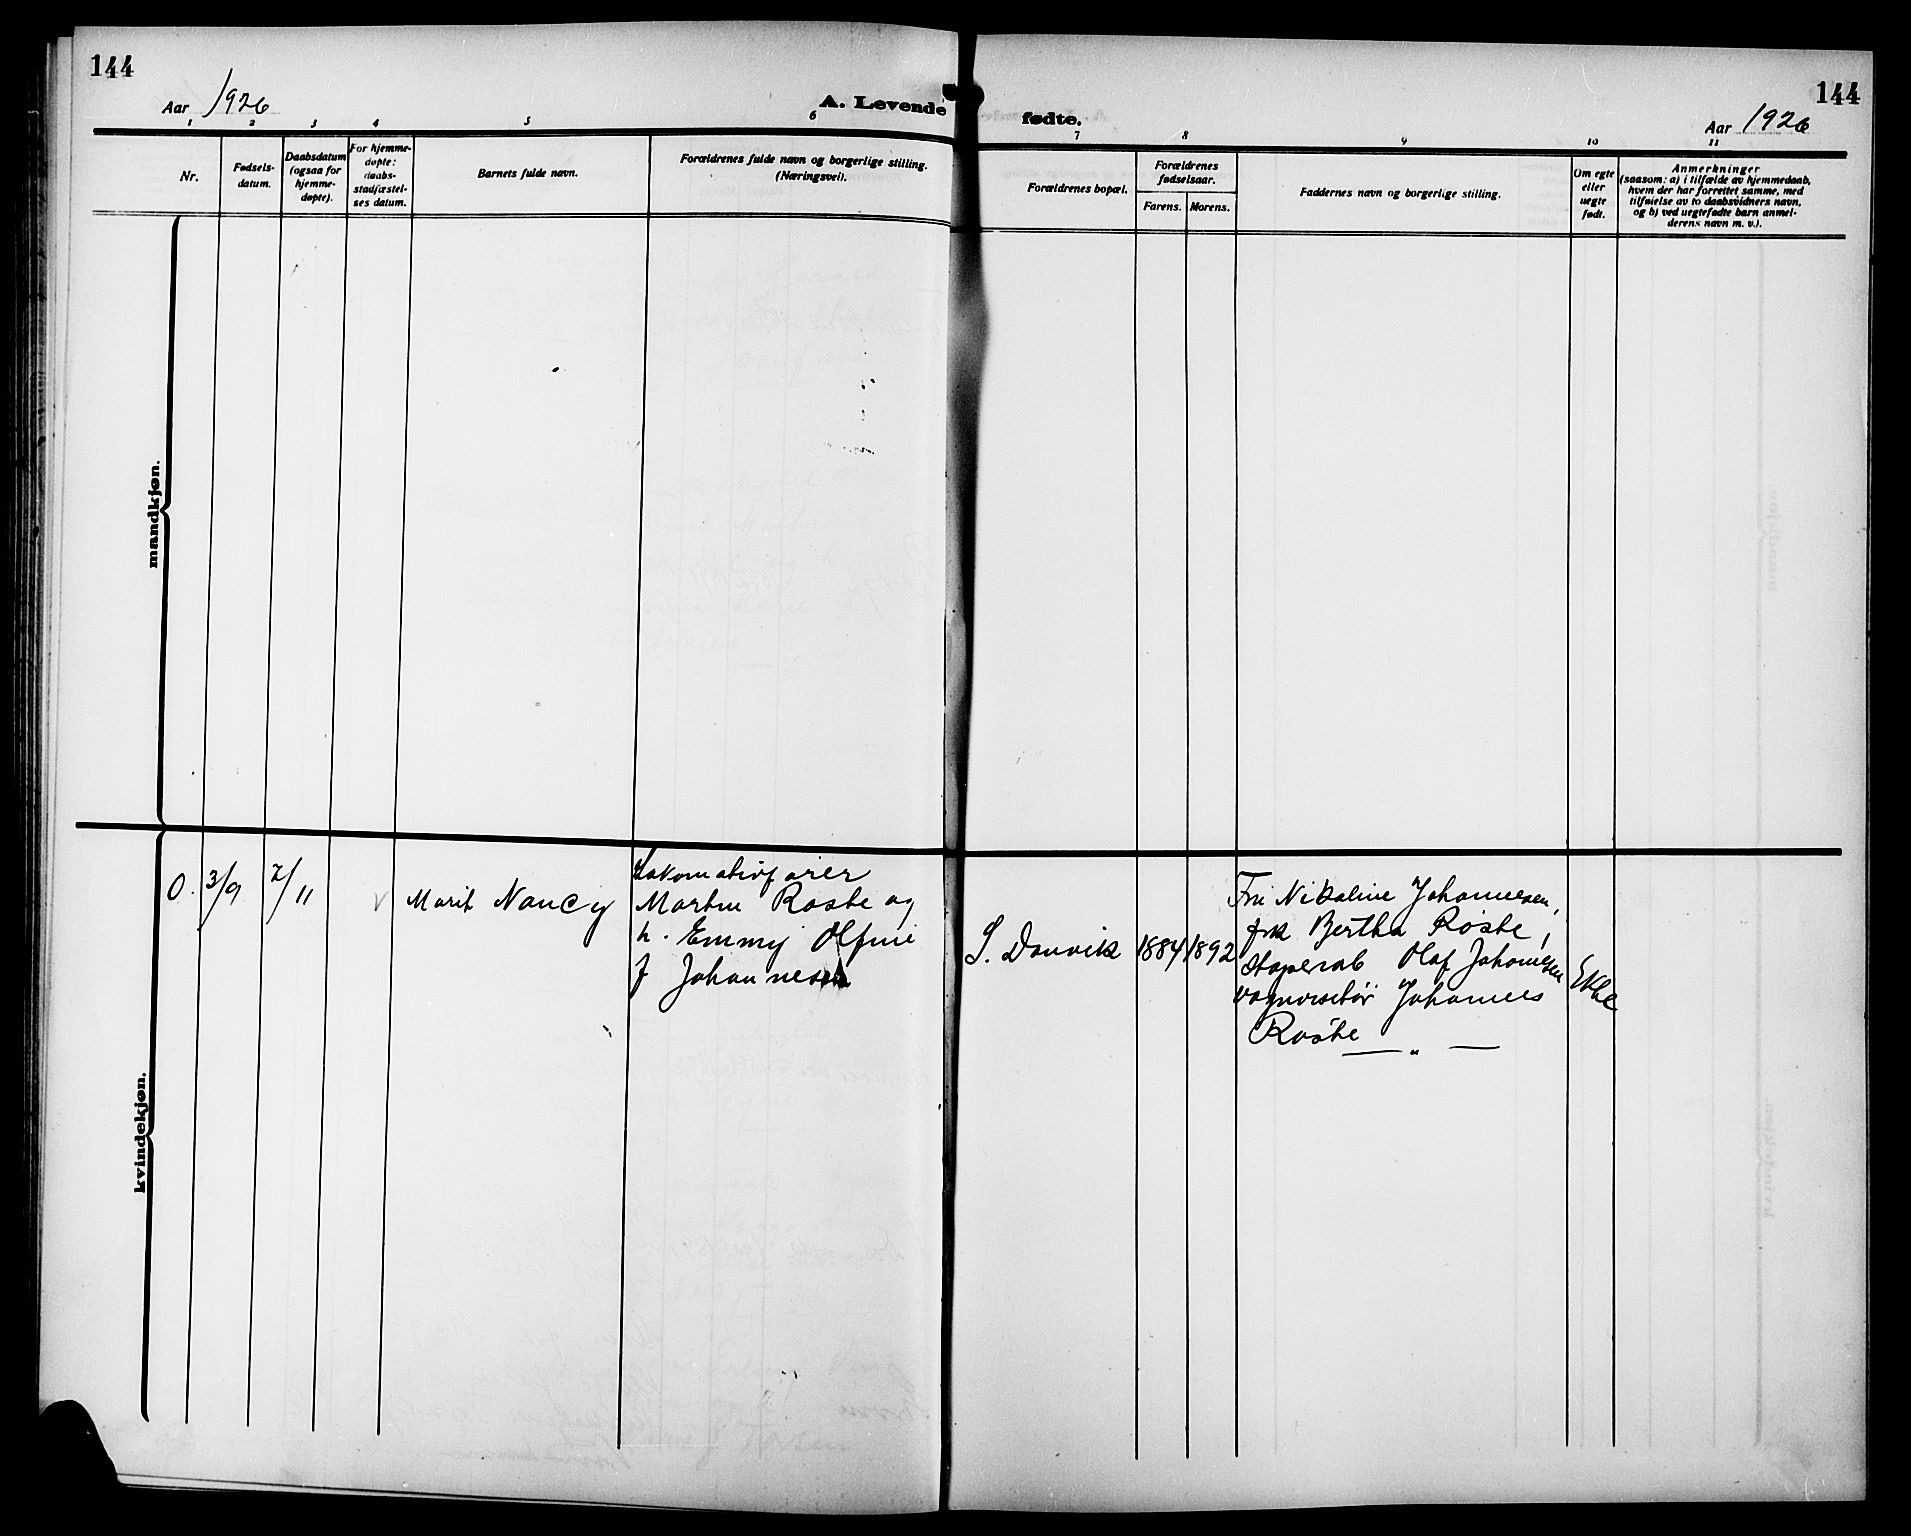 144
144
Aar 1926
A. Levende
fødte.
Aar 1926
1 2 3 4 5 6
7 8 9 10 11
Nr.
Fødsels-
datum.
Daabsdatum
(ogsaa for
hjemme-
døpte).
For hjemme-
døpte:
daabs-
stadfæstel-
ses datum.
Barnets fulde navn.
Forældrenes fulde navn og borgerlige stilling.
(Næringsvei).
Forældrenes bopæl.
Forældrenes
fødselsaar.
Farens. Morens.
Faddernes navn og borgerlige stilling.
Om egte
eller
uegte
født.
Anmerkninger
(saasom: a) i tilfælde av hjemmedaab,
hvem der har forrettet samme, med
tilføielse av to daabsvidners navn,
og b) ved uegtefødte barn anmel-
derens navn m. v.).
mandkjøn.
kvindekjøn.
0. 3/9 7/11
Marit Nancy
Lokomotivfører
Martin Roste og
h. Emmy Olfine
f Johannesen
S. Danvik
1884 1892
Fru Nikoline Johannesen,
frk Bertha Röste,
Olaf Johannesen
Johannes
Röste
— " —
Ekte